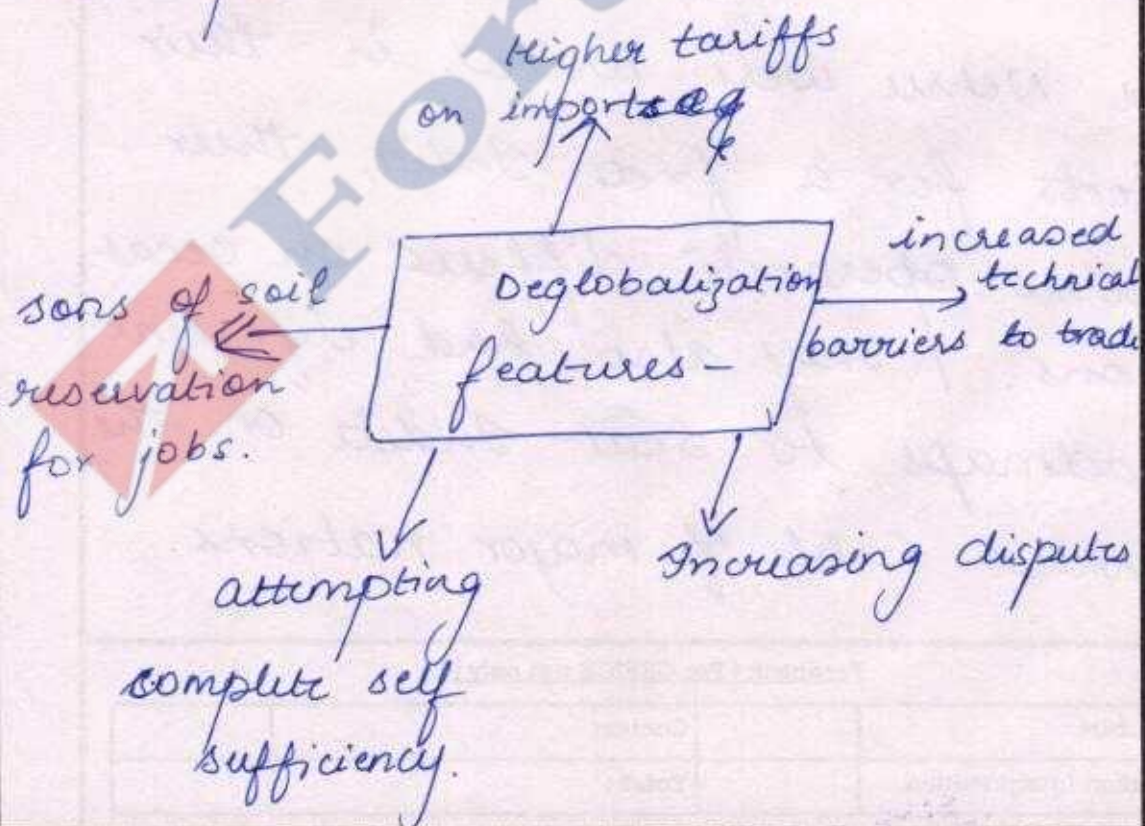 Higher tariffs
on imports
Deglobalization
features -
increased
technical
barriers to trade
sons of soil
reservation
for jobs.
attempting
complete self
sufficiency.
Increasing disputes
For